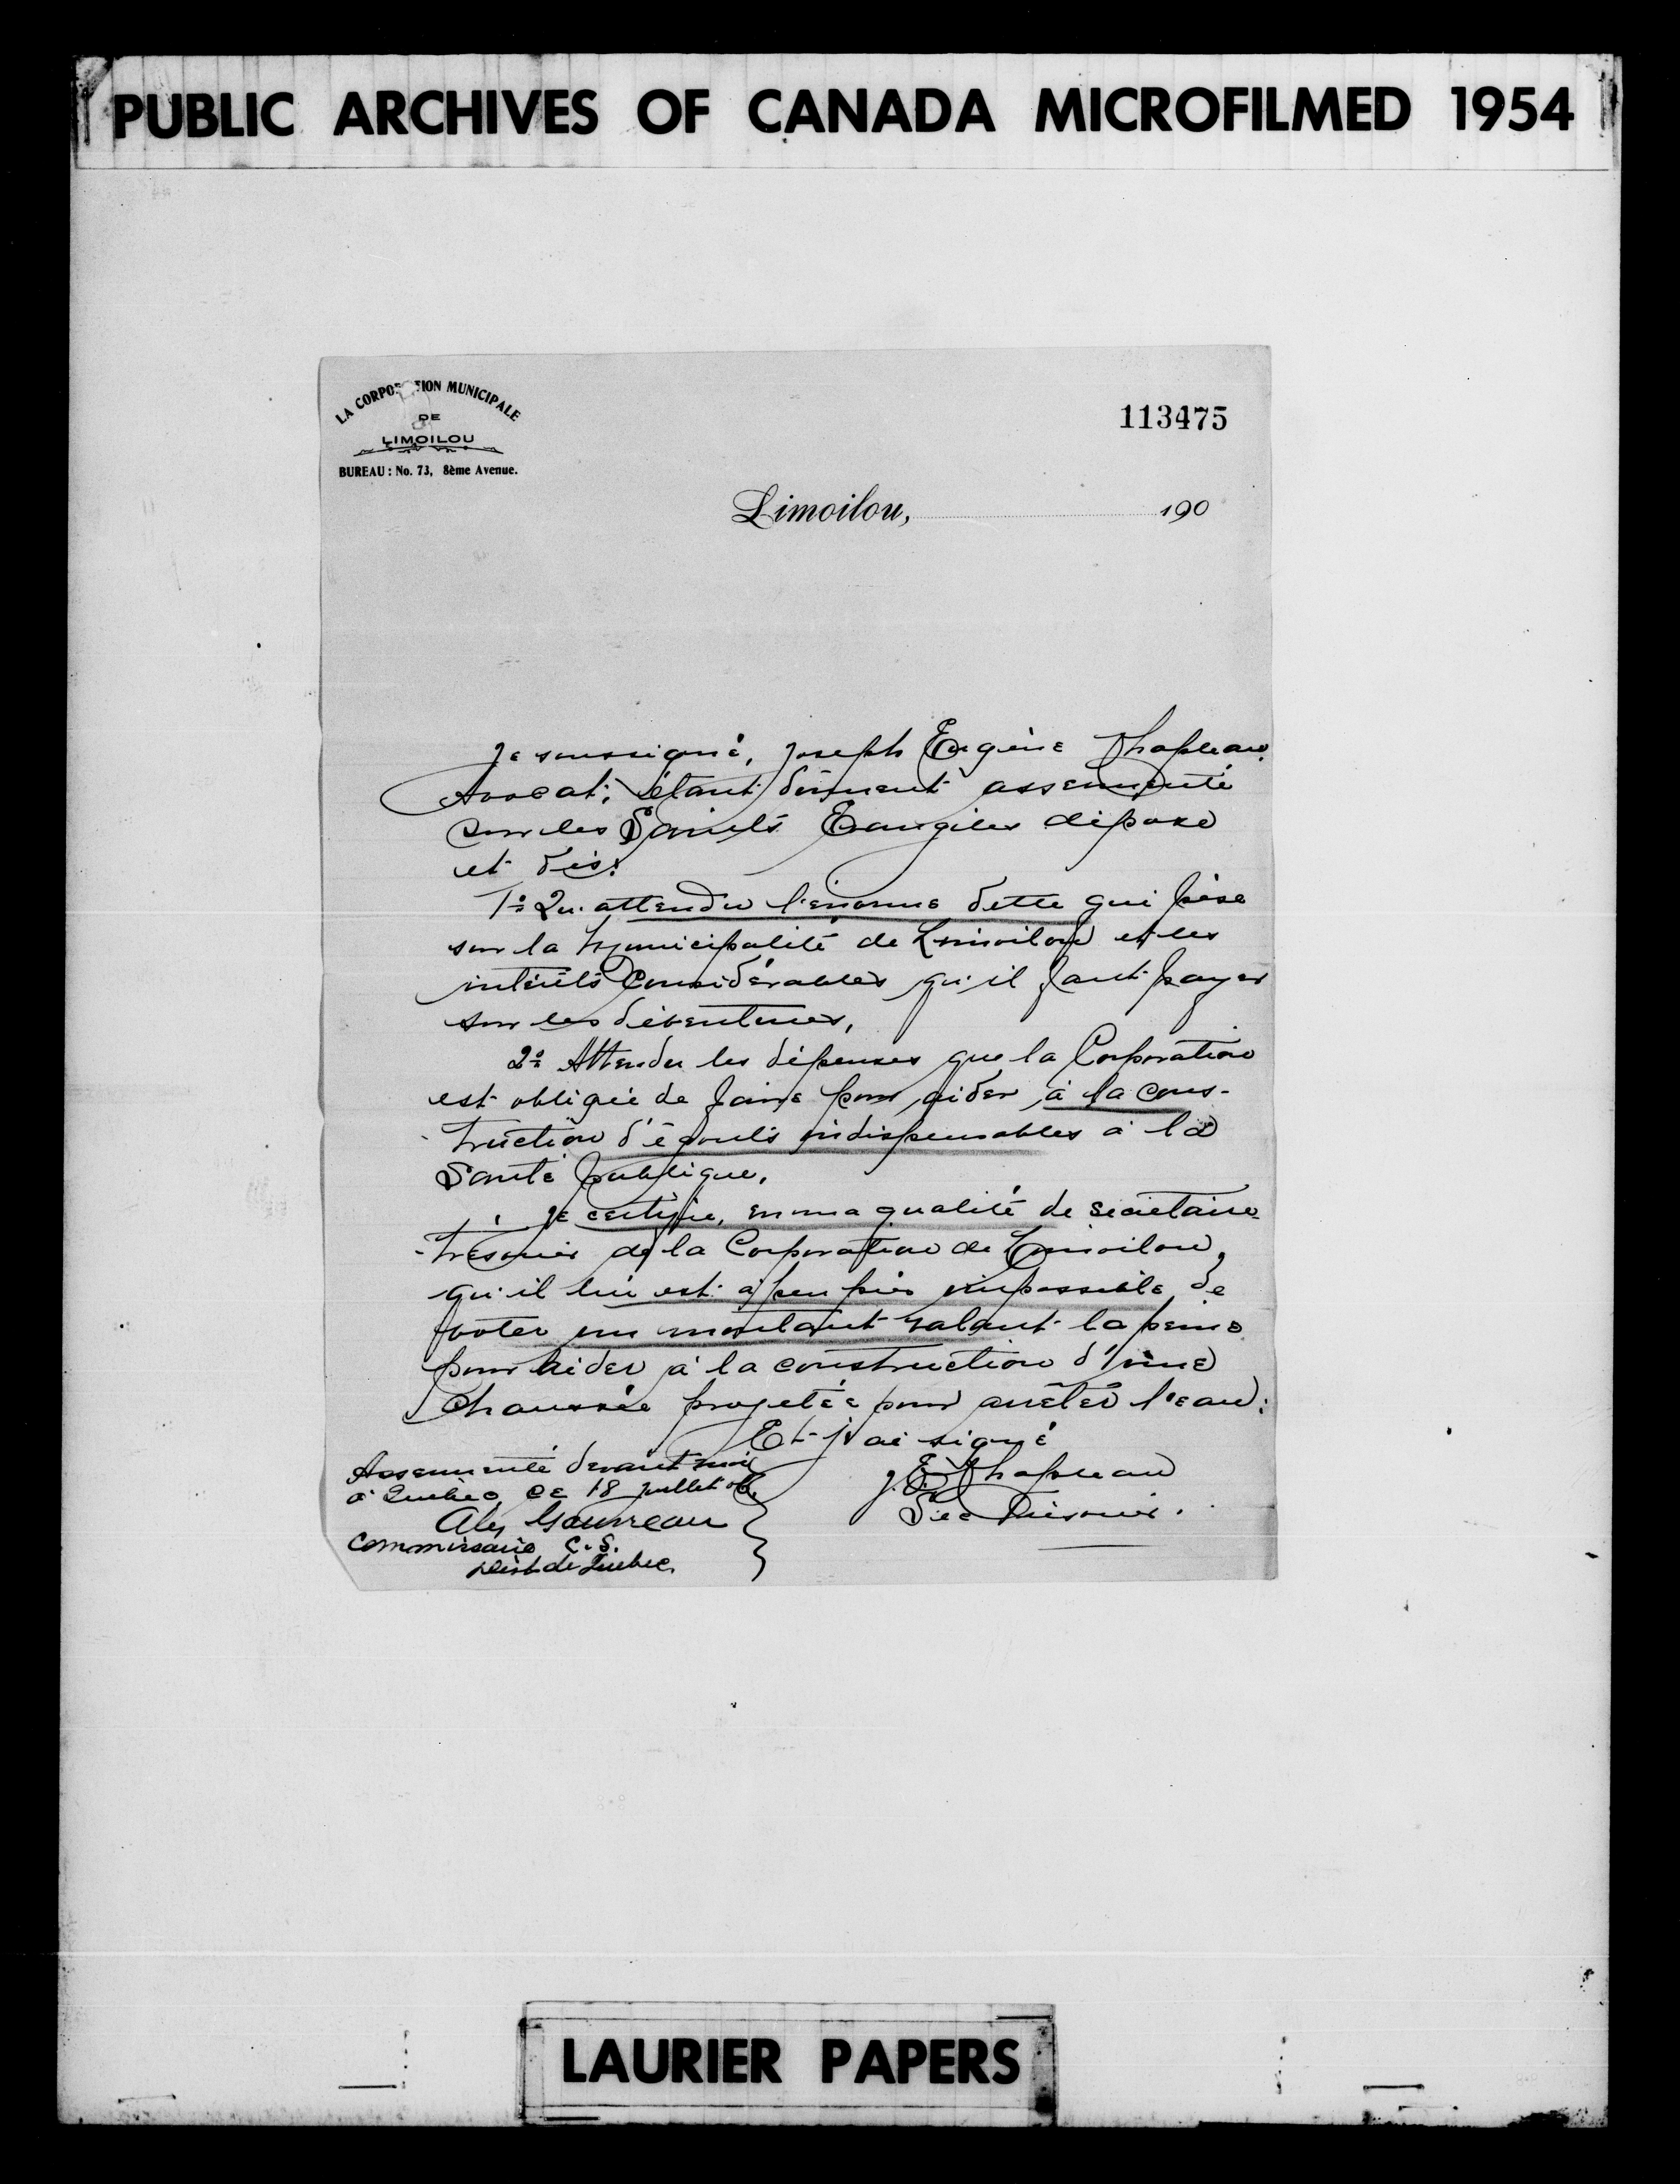 PUBLIC ARCHIVES OF CANADA MICROFILMED 1954
LA CORPORATION MUNICIPALE
DE
LIMOILOU
BUREAU : No. 73, 8ème Avenue.
113475
Limoilou, 190
Je soussigné, Joseph Eugène Chapleau,
Avocat, étant dûment assermenté
sur les Saints Evangiles dépose
et dis:
1º Qu'attendu l'énorme dette qui pèse
sur la Municipalité de Limoilou et les
intérêts considérables qu'il faut payer
sur les débentures,
2º Attendu les dépenses que la Corporation
est obligée de faire pour aider à la cons-
-truction d'égouts indispensables à la
Santé publique,
Je certifie, en ma qualité de secrétaire
-trésorier de la Corporation de Limoilou,
qu'il lui est à peu près impossible de
voter un montant valant la peine
pour aider à la construction d'une
chaussée projetée pour arrêter l'eau:
Et j'ai signé
J. E. Chapleau
Séc Trésorier.
Assermenté devant moi
à Québec, ce 18 juillet 06
Gauvreau
Commissaire C. S.
Dist de Québec.
LAURIER PAPERS